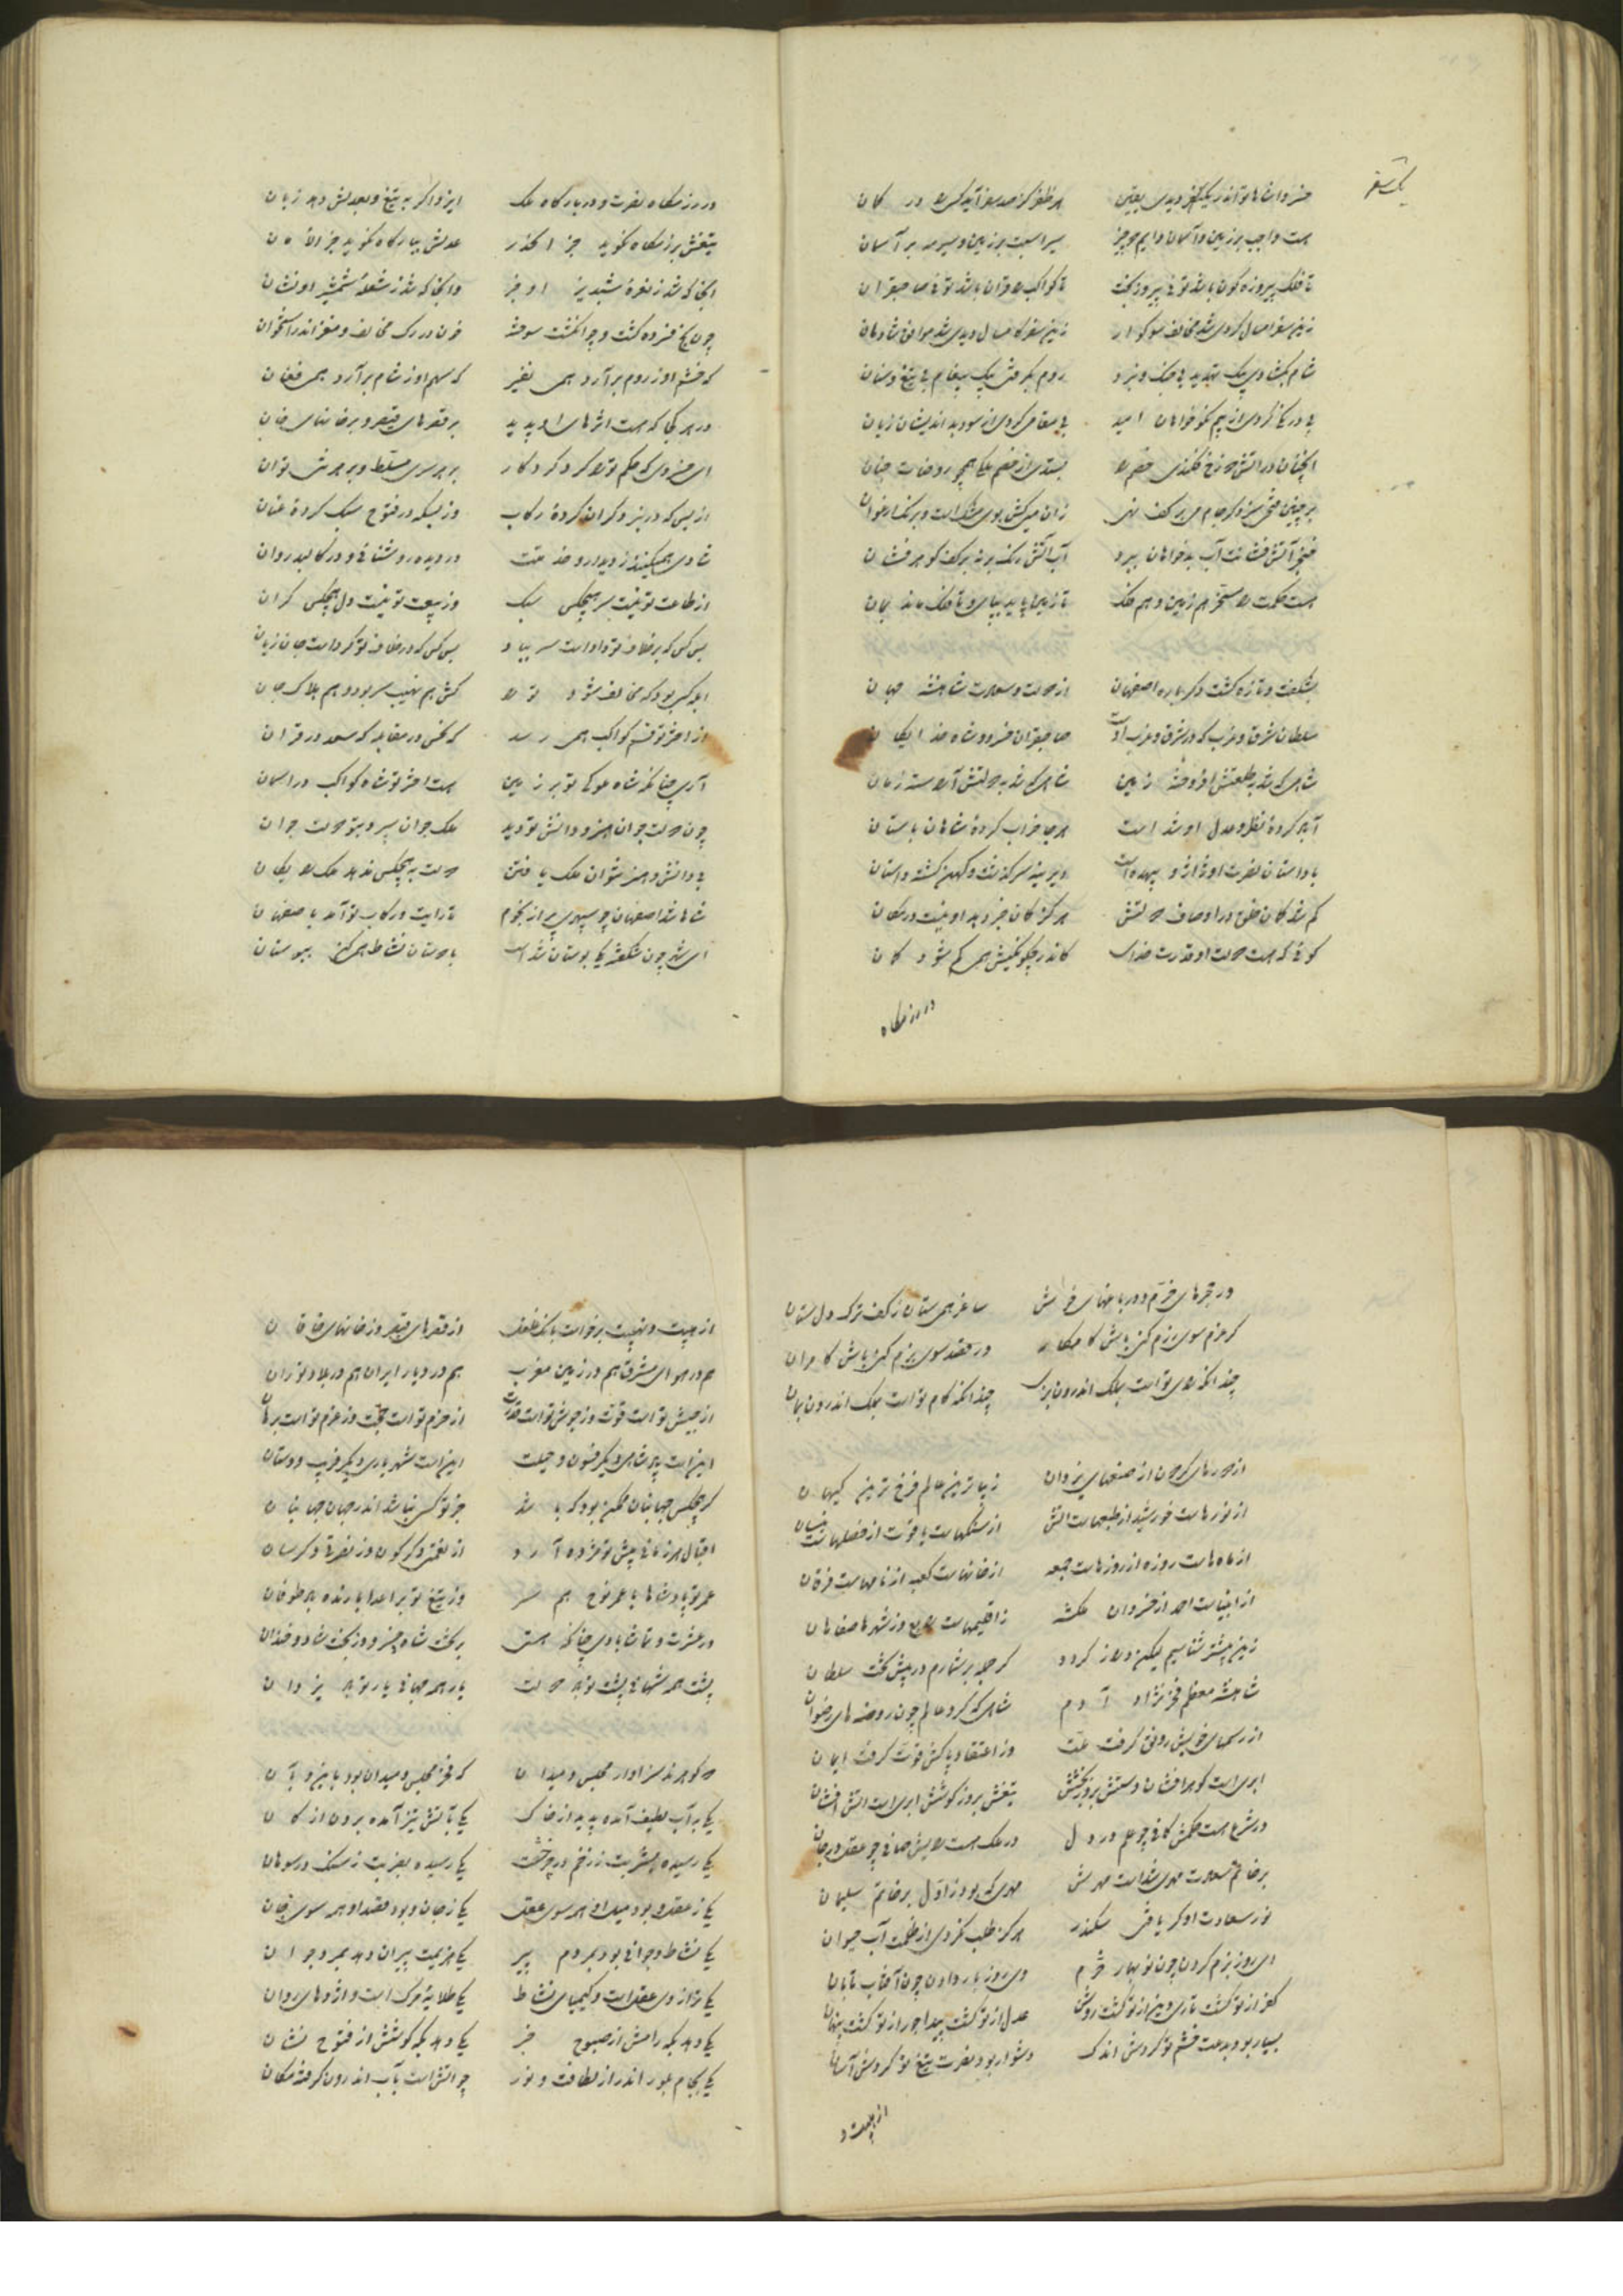 یک سفر
خسروا شاها تو اندر یکسفر دیدی بیقین هر ظفر کز صد سفر آید کسی را در کمان
هست واجب بر زمین و آسمان دایم دو چیز سیر اسبت بر زمین و سیر مه بر آسمان
تا فلک پیروزه گون باشد توئی پیروزبخت تا کواکب را قران باشد توئی صاحبقران
زین سفر امسال کردی شد مخالف سوکوار زین سفر کامسال دیدی شد موافق شادمان
شام بکشادی بیک تهدید بی جنک و نبرد روم بکرفتی بیک پیغام بی تیغ و سنان
بی درنگ کردی از بیم نکوخواهان امید بی مقامی کردی از سود بداندیشان زیان
آنچنان در آتش دوزخ فکندی خصم را بستدی از خصم ملکی همچو روضات جنان
بر چنین فتحی سزد کر جام می بر کف نهی زان می کش بوی مشک است و برنک ارغوان
خنجر آتش فشانت آب بدخواهان ببرد آب آتش رنک بر نه بر کف کوهر فشان
هست حکمت را مسخر هم زمین و هم فلک تا زمین پاید بپای و تا فلک ماند بمان
بشکفت و تازه کشت دکرباره اصفهان از دولت و سعادت شاهنشه جهان
سلطان شرق و غرب که در شرق و غرب اوست صاحبقران خسرو و شاه خدایکان
شاهی که شد بطلعتش افروخته زمین شاهی که شد بدولتش آراسته زمان
آباد کردهٔ نظر و عدل او شد است هر جا خراب کردهٔ شاهان باستان
با داستان نصرت او ژاژ و بیهده است دیرینه سرکذشت و کهن کشته داستان
کم شد کمان خلق در اوصاف دولتش هرکز کمان خرد بد او نیست در کمان
کوئی که هست دولت او قدرت خدای کاندر چکونکیش همی کم شود کمان
در رزمکاه
در رزمکاه نصرت و در بارکاه ملک ایزد اکر به تیغ و بعدلش دهد زبان
تیغش برزمکاه نکوید جز الحذر عدلش ببارکاه نکوید جز الامان
آنجا که شد ز نعرهٔ شبدیز او خبر وانجا که شد ز شعلهٔ شمشیر او نشان
چون یخ فسرده کشت و چو انکشت سوخته خون در رک مخالف و مغز اندر استخوان
که خشم او ز روم برآرد همی نفیر که سهم او ز شام برآرد همی فغان
در هر کجا که هست اثرهای او پدید بر قصرهای قیصر و بر خانهای خان
ای خسروی که حکم تو را کرد کردکار بر هر سری مسلط و بر هر تنی توان
از بس که در نبرد کران کردهٔ رکاب وز بسکه در فتوح سبک کردهٔ عنان
شادی همی کنند ز دیدار و خدمتت در دیده روشنائی و در کالبد روان
از طاعت تو نیست سر هیچکس سبک وز بیعت تو نیست دل هیچکس کران
بس کس که بر خلاف تو داد است سر بباد بس کس که در خلاف تو کرد است جان زیان
ابله کسی بود که مخالف شود تو را کش هم نهیب سر بود و هم هلاک جان
از اختر تو قسم کواکب همی رسد که نحس در مقابله که سعد در قران
آری چنانکه شاه ملوکی تو بر زمین هست اختر تو شاه کواکب در آسمان
چون دولت جوان و هنر و دانش تو دید ملک جوان سپرد بتو دولت جوان
بی دانش و هنر نتوان ملک یافتن دولت به هیچکس ندهد ملک رایکان
شاها شد اصفهان چو سپهری پر از نجوم تا رایت و رکاب تو آمد باصفهان
ای شه چون شکفته یکی بوستان شد است با دوستان نشاط همی کن ببوستان
در قصرهای خرم و در باغهای خوش ساغر همی ستان ز کف ترک دلستان
کر عزم سوی رزم کنی باش کامکار ور قصد سوی بزم کنی باش کامران
چندانکه رای تو است بملک اندرون بزی چندانکه کام تو است بملک اندرون بمان
از دورهای کردون از صنعهای یزدان زیباترین عالم فرخ ترین کیهان
از نورهاست خورشید از طبعهاست آتش از سنکهاست یاقوت از فصلهاست نیسان
از ماه هاست روزه از روزهاست جمعه از خانهاست کعبه از نامهاست فرقان
از انبیاست احمد از خسروان ملکشه ز اقلیمهاست رابع وز شهرها صفاهان
زین بیشتر شناسیم لیکن دراز کردد کر جمله بر شمارم در پیش تخت سلطان
شاهنشه معظم فخر نژاد آدم شاهی که کرد عالم چون روضه های رضوان
از رسمهای خوبش رونق کرفت ملت وز اعتقاد پاکش قوت کرفت ایمان
ابری است کوهرافشان دستش بروز بخشش تیغش بروز کوشش ابری است آتش افشان
در شرع هست حکمش کافی چو علم در دل در ملک هست رایش صافی چو عقل در جان
بر خاتم سعادت مهری شد است مهرش مهری که بود ز اول بر خاتم سلیمان
نور سعادت او کر یافتی سکندر هرکز طلب نکردی از ظلمت آب حیوان
ای روز بزم کردن چون نوبهار خرم وی روز بار دادن چون آفتاب تابان
کفر از تو کشت تاری دین از تو کشت روشن عدل از تو کشت پیدا جور از تو کشت پنهان
بسیار بود بدعت خشم تو کردش اندک دشوار بود نصرت تیغ تو کردش آسان
از هیبت و
از هیبت و نهیبت برخواست بانک و غلغل از قصرهای قیصر وز خانهای خاقان
هم در هوای مشرق هم در زمین مغرب هم در دیار ایران هم در بلاد توران
از جیش تو است قوت وز جوش تو است قدرت از حزم تو است حجت وز عزم تو است برهان
اینست پادشاهی دیکر فسون و حیلت اینست شهریاری دیکر فریب و دستان
کر هیچکس جهانبان ممکن بود که باشد جز تو کسی نباشد اندر جهان جهانبان
اقبال هر زمانی پیش تو مژده آرد از نعمتی دکرکون وز نصرتی دکرسان
عمر تو پادشاها با عمر نوح همسر وز تیغ تو بر اعدا بارنده باد طوفان
در عشرت و تماشا بادی چنانکه هستی بر تخت شاه خسرو وز بخت شاد و خندان
پشت همه شهانی پشت تو باد دولت یار همه جهانی یار تو باد یزدان
دو کوهرند سزاوار مجلس و میدان که فخر مجلس و میدان بود باین و بآن
یکی بر آب لطیف آمده پدید از خاک یکی بآتش تیز آمده برون از کان
یکی رسیده بشربت ز زخم در چرخشت یکی رسیده بضربت ز سنک و سوهان
یکی ز عقل و بود میل او همه سوی عقل یکی ز جان و بود قصد او همه سوی جان
یکی نشاط و جوانی بود بمردم پیر یکی هزیمت پیران دهد بمرد جوان
یکی ترازوی عقل است و کیمیای نشاط یکی طلایهٔ مرک است و اژدهای روان
یکی دهد بکه رامش از صبوح خبر یکی دهد بکه کوشش از فتوح نشان
یکی بجام بلور اندر از لطافت و نور چو آتش است بآب اندرون کرفته مکان